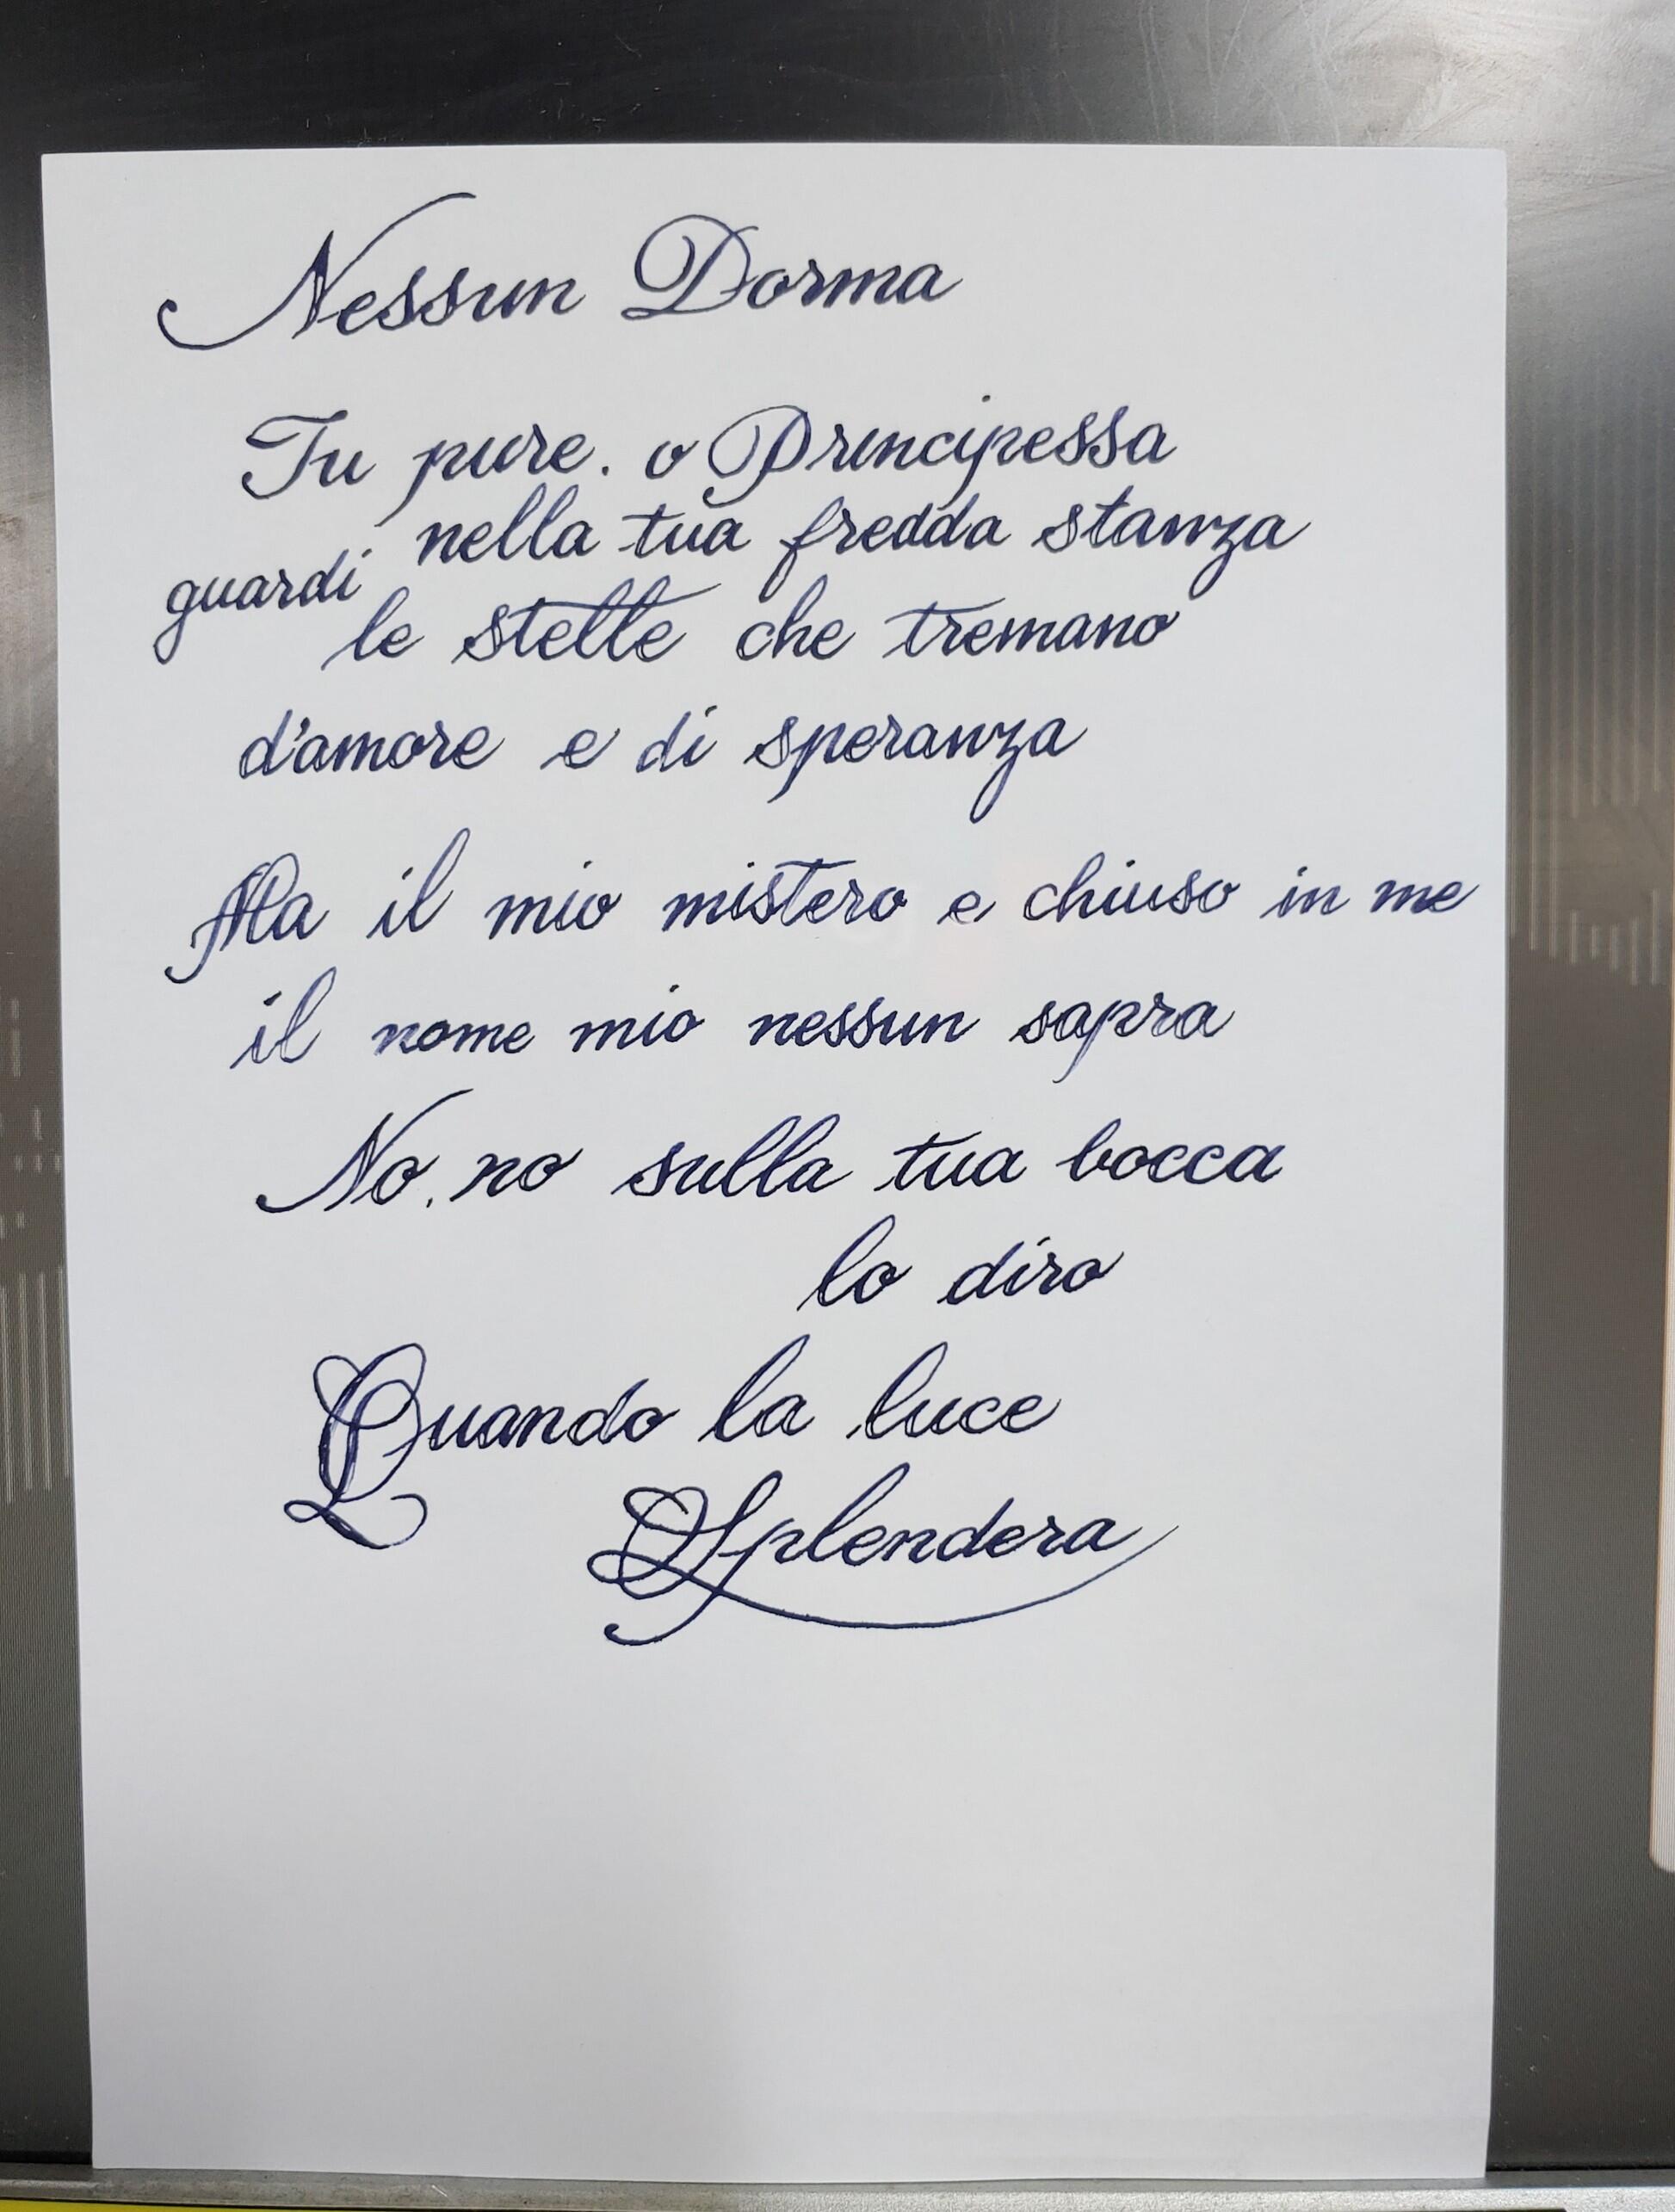 Nessun Dorma
Tu pure. o Principessa
nella tua fredda stanza
guardi
le stelle che tremano
d'amore e di speranza
Ma il mio mistero e chiuso in me
il nome mio nessun sapra
No, no sulla tua bocca
lo diro
Quando la luce
Splendera